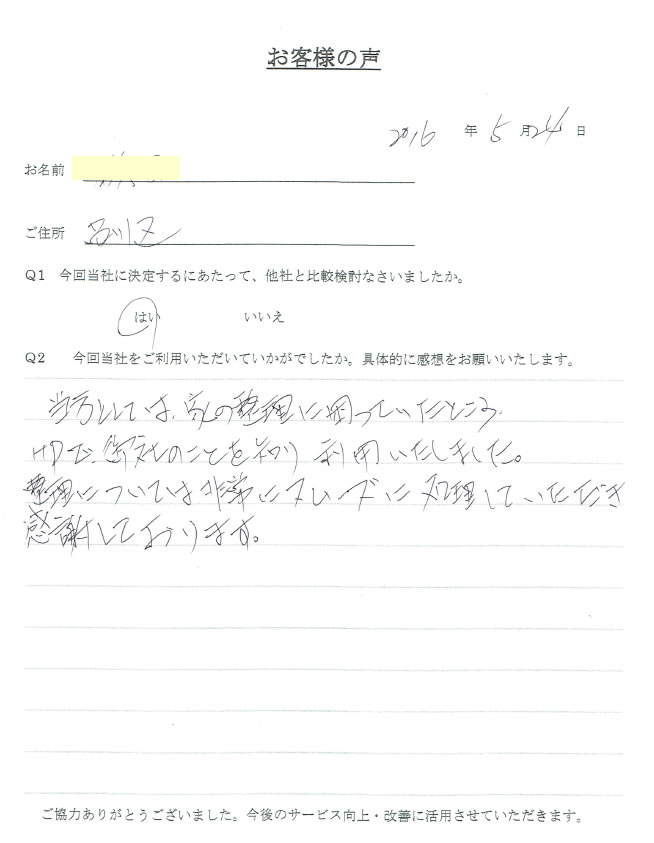 お客様の声
2016 年 5 月 24 日
お名前
ご住所 品川区
Q1 今回当社に決定するにあたって、他社と比較検討なさいましたか。
はい いいえ
Q2 今回当社をご利用いただいていかがでしたか。具体的に感想をお願いいたします。
当方としては、家の整理に困っていたところ、
HPで、御社のことを知り 利用いたしました。
整理については非常にスムーズに処理していただき
感謝しております。
ご協力ありがとうございました。今後のサービス向上・改善に活用させていただきます。